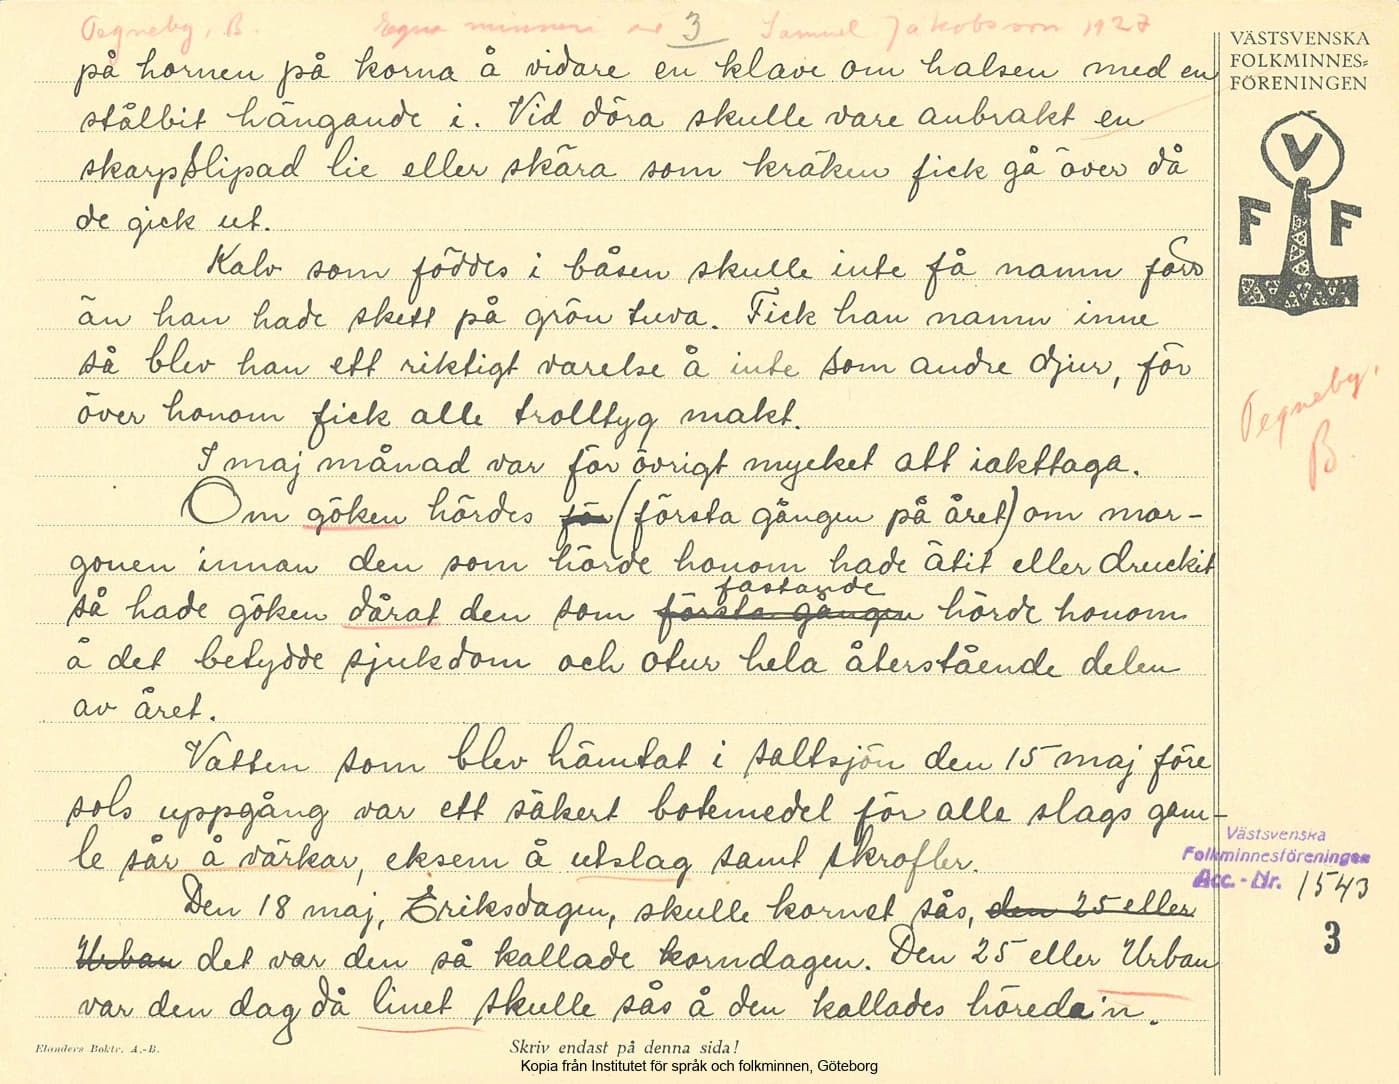 Tegneby, B. Egna minnen av 3 Samuel Jakobsson 1927
på hornen på korna å vidare en klave om halsen med en
stålbit hängande i. Vid döra skulle vare anbrakt en
skarpslipad lie eller skära som kräken fick gå över då
de gick ut.
Kalv som föddes i båsen skulle inte få namn förr
än han hade skett på grön tuva. Fick han namn inne
så blev han ett riktigt varelse å inte som andre djur, för
över honom fick alle trolltyg makt.
I maj månad var för övrigt mycket att iakttaga.
Om göken hördes för (första gången på året) om mor-
gonen innan den som hörde honom hade ätit eller druckit
fastande
så hade göken dårat den som första gången hörde honom
å det betydde sjukdom och otur hela återstående delen
av året.
Vatten som blev hämtat i saltsjön den 15 maj före
sols uppgång var ett säkert botemedel för alle slags gam-
le sår å värkar, eksem å utslag samt skrofler.
Den 18 maj, Eriksdagen, skulle kornet sås, den 25 eller
Urban det var den så kallade korndagen. Den 25 eller Urban
var den dag då linet skulle sås å den kallades höreda'n.
Elanders Boktr. A.-B.
Skriv endast på denna sida!
Kopia från Institutet för språk och folkminnen, Göteborg
VÄSTSVENSKA
FOLKMINNES-
FÖRENINGEN
V
F F
Tegneby,
B.
Västsvenska
Folkminnesföreningen
Acc.-Nr. 1543
3